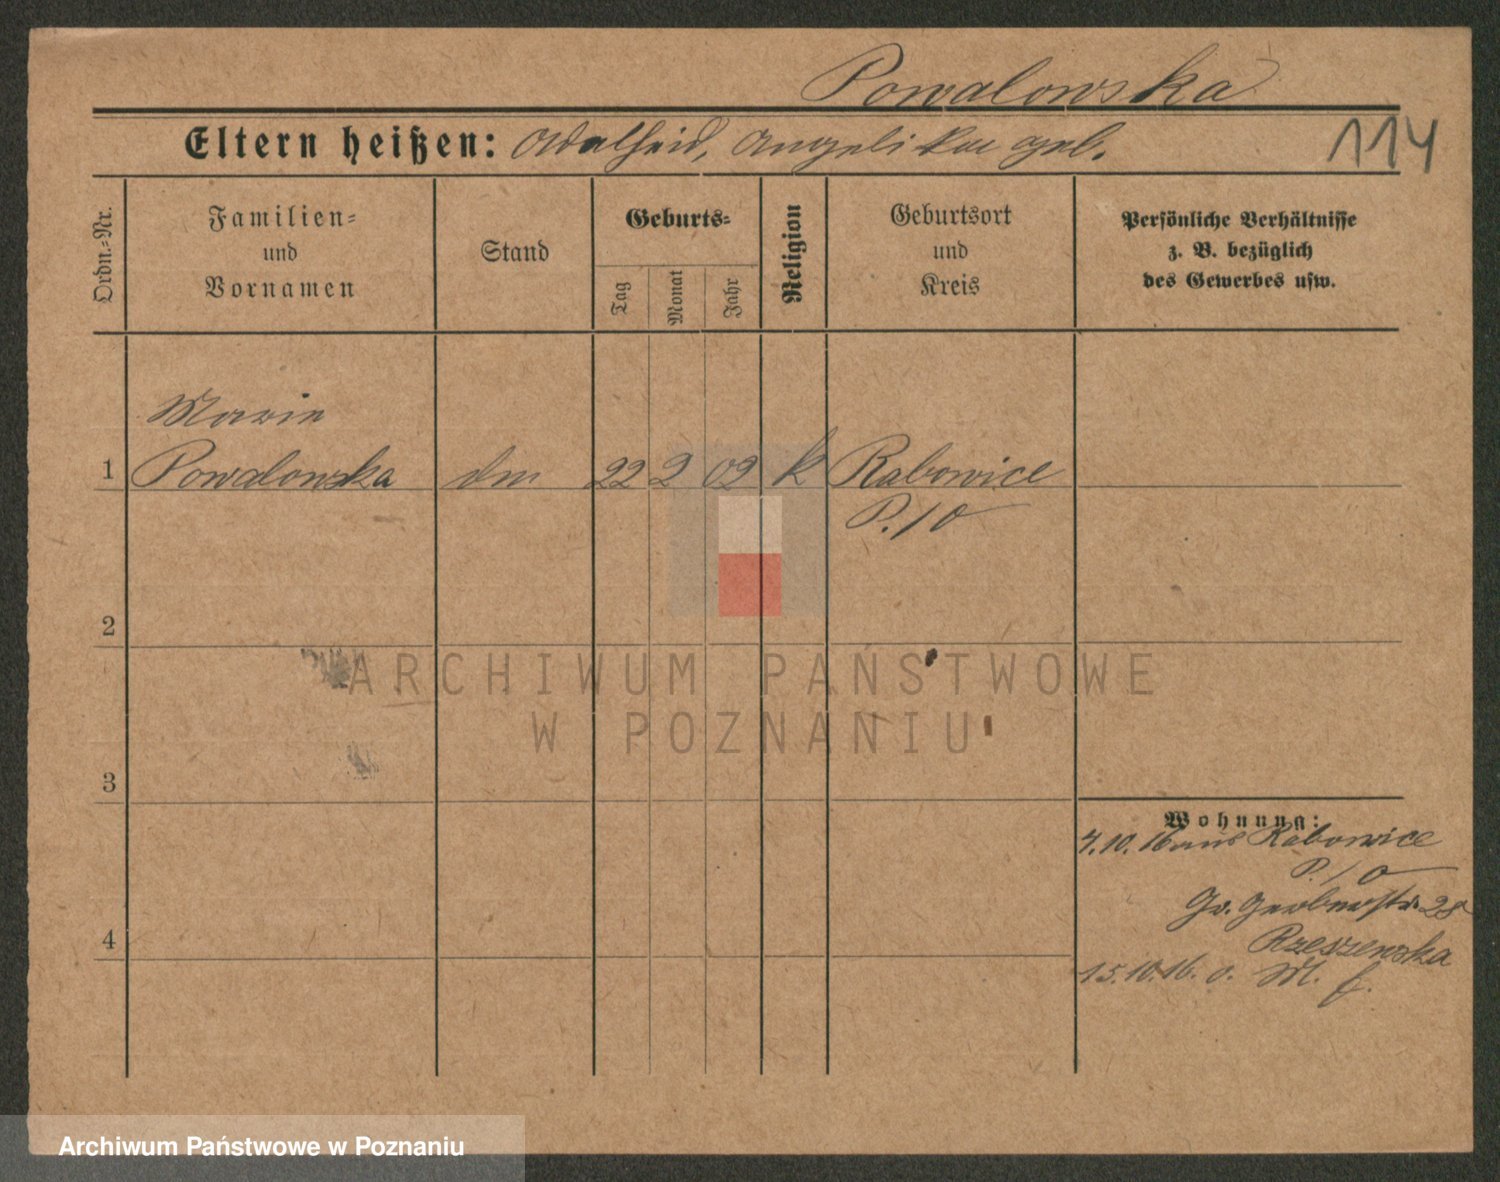 Powalowska
Eltern heißen: Adelheid, Angelika geb.
114
Ordn.-Nr.
Familien-
und
Vornamen
Stand
Geburts-
Tag
Monat
Jahr
Religion
Geburtsort
und
Kreis
Persönliche Verhältnisse
z. B. bezüglich
des Gewerbes usw.
Marie
1 Powalowska dm 22 2 09 k Rabowice
P. / O
2
ARCHIWUM PAŃSTWOWE
W POZNANIU
3
Wohnung:
4.10.16 aus Rabowice
P. / O
Gr. Gerberstr. 28
4
Rzeszewska
15.10.16. o. M. f.
Archiwum Państwowe w Poznaniu